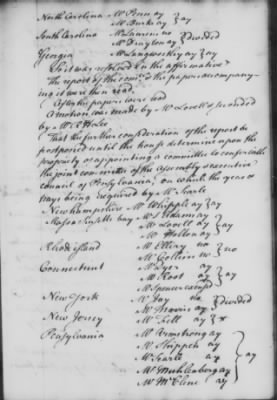 North Carolina Mr Penn ay
Mr Burke ay } ay
South Carolina Mr Laurens no
Mr Drayton ay } divided
Georgia Mr Langworthy ay } ay
So it was resolved in the affirmative
The report of the comee & the papers accompany-
ing it were then read.
A motion was made by Mr Lovell seconded
by Mr
That the further consideration of the report be
postponed until the house determine upon the
propriety of appointing a committee to confer with
the joint committee of the assembly & executive
council of Pensylvania, on which the yeas &
nays being required by Mr Searle
New hampshire Mr Whipple ay } ay
Massachusetts bay Mr S Adams ay
Mr Lovell ay } ay
Mr Holten ay
Rhode island Mr Ellery no
Mr Collins no } no
Connecticut Mr Dyer ay
Mr Root ay } ay
Mr Spencer
New York Mr Jay no
Mr Morris ay } divided
New Jersey Mr Fell ay } x
Pensylvania Mr Armstrong ay
Mr Shippen ay
Mr Searle ay } ay
Mr Muhlenberg ay
Mr McClene ay